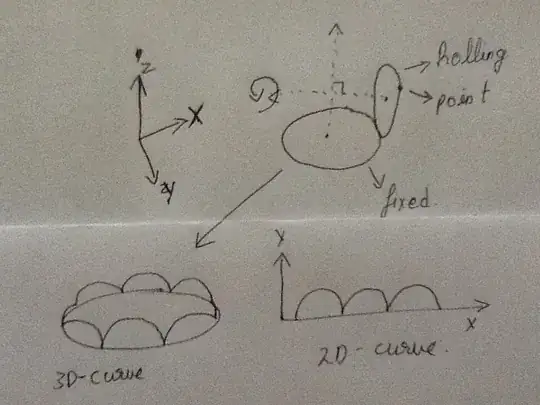 z
X
y
Rolling
point
fixed.
3D-curve
Y
X
2D-curve.